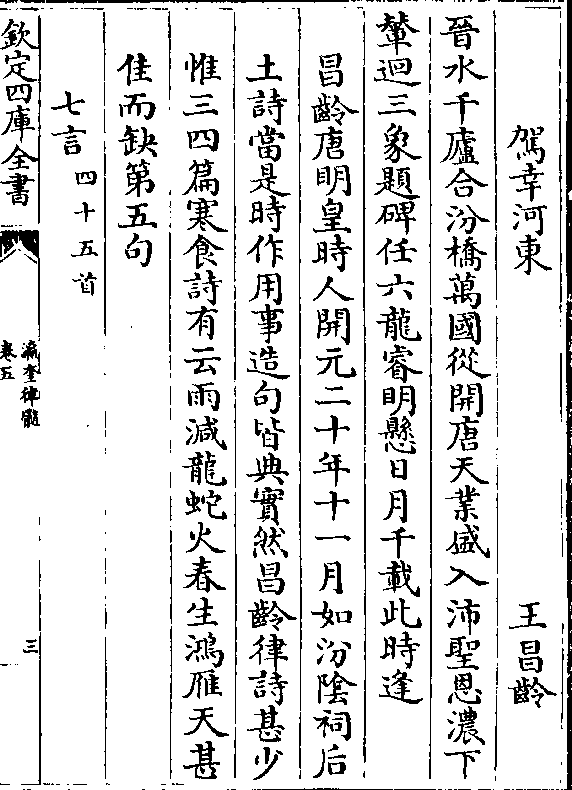 駕幸河東　王昌齡
晉水千廬合汾橋萬國從開唐天業盛入沛聖恩濃下
輦迴三象題碑任六龍睿明懸日月千載此時逢
昌齡唐明皇時人開元二十年十一月如汾陰祠后
土詩當是時作用事造句皆典實然昌齡律詩甚少
惟三四篇寒食詩有云雨減龍蛇火春生鴻雁天甚
佳而缺第五句
七言四十五首
欽定四庫全書
瀛奎律髓
卷五
三